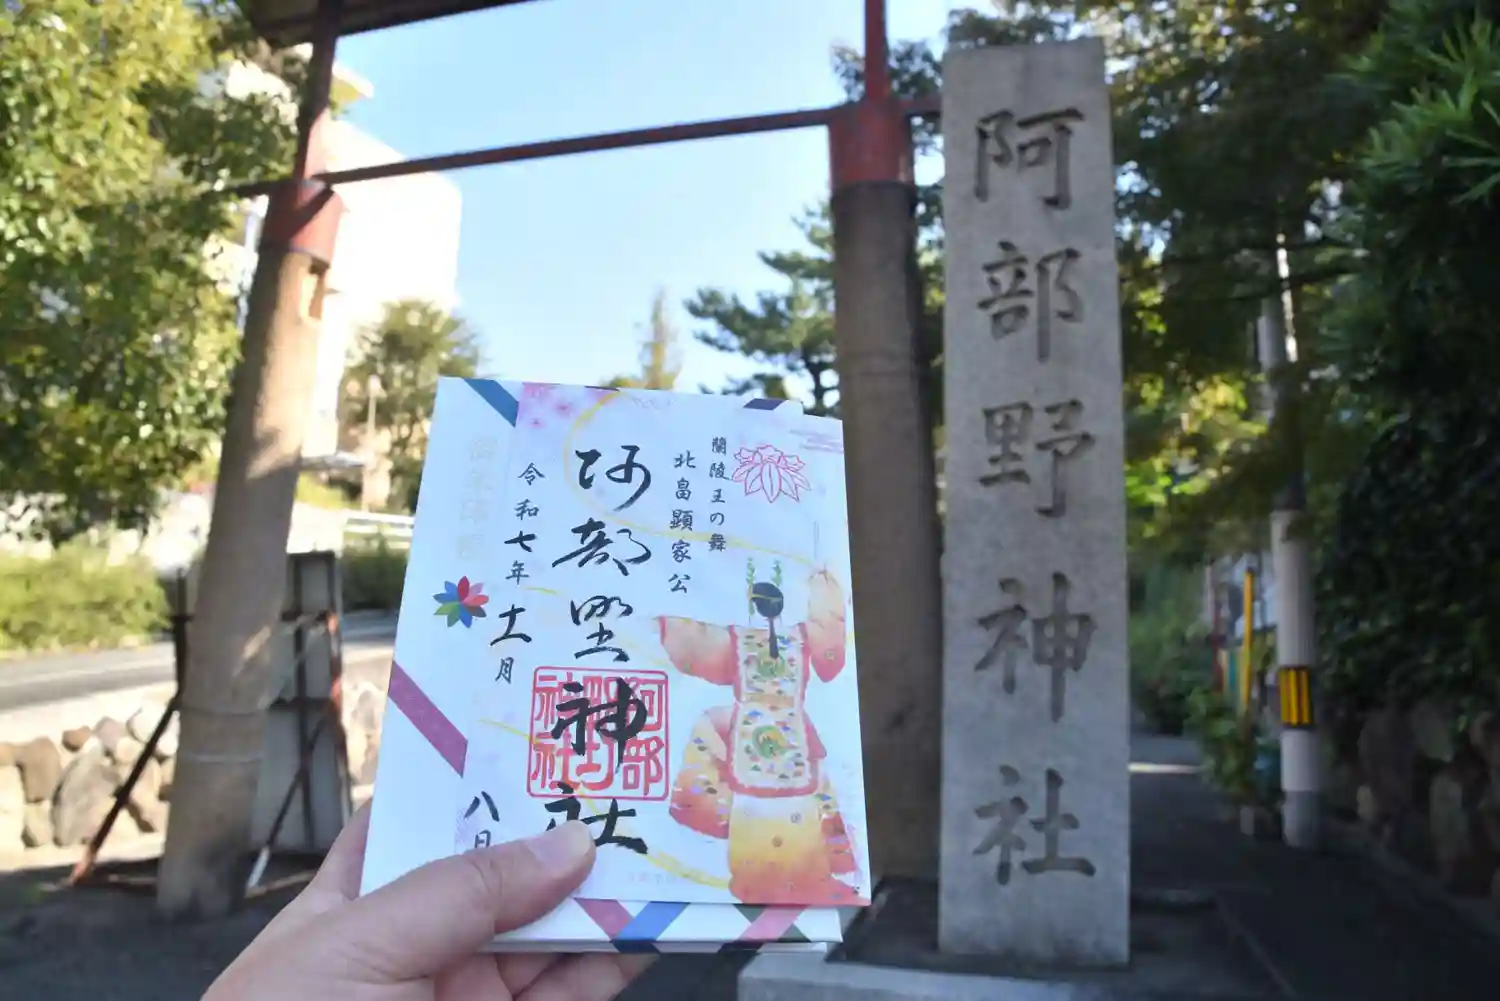 阿部野神社
蘭陵王の舞
北畠顕家公
阿部野神社
阿部野神社
令和七年十一月
八日